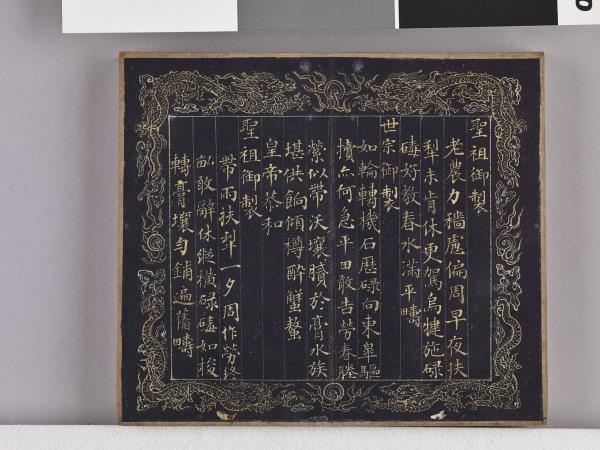 聖祖御製
老農力穡慮偏周早夜扶
犁未肯休更駕烏犍施碌
碡好教春水滿平疇
世宗御製
如輪轉機石歷碌向東皋驅
犢亦何急平田敢告勞春塍
縈似帶沃壤膩於膏水族
堪供餉傾樽醉蟹螯
皇帝恭和
聖祖御製
帶雨扶犁一夕周作勞終
畝敢辭休縱橫碌碡如梭
轉膏壤勻鋪遍舊疇